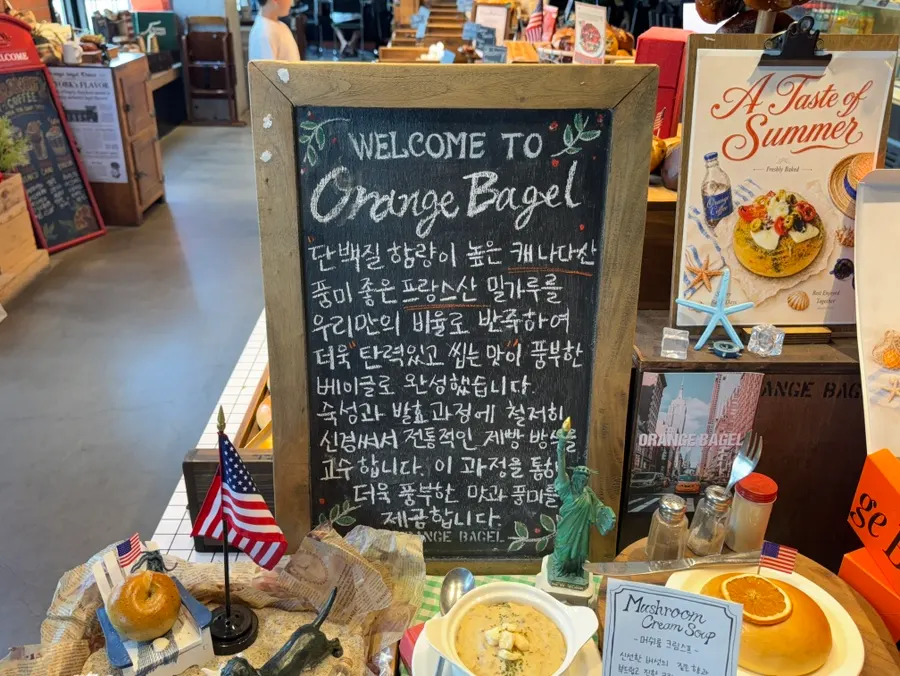 WELCOME TO
Orange Bagel
"단백질 함량이 높은 캐나다산
풍미 좋은 프랑스산 밀가루를
우리만의 비율로 반죽하여
더욱 "탄력있고 씹는 맛"이 풍부한
베이글로 완성했습니다.
숙성과 발효 과정에 철저히
신경써서 전통적인 제빵 방식을
고수합니다. 이 과정을 통해
더욱 풍부한 맛과 풍미를
제공합니다.
ORANGE BAGEL
A Taste of
Summer
Freshly Baked
ORANGE BAGEL
ANGE BAG
Mushroom
Cream Soup
- 머쉬룸 크림스프 -
신선한 버섯의
WELCOME
COFFEE
YORK'S FLAVOR
ge